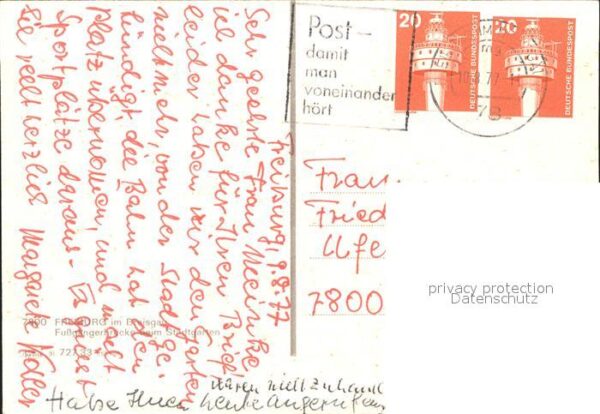 Post –
damit
man
voneinander
hört
20
DEUTSCHE BUNDESPOST
DEUTSCHE BUNDESPOST
78
Freiburg, 9.8.77
Sehr geehrte Frau Meinike
viel danke für Ihren Brief,
leider haben wir den Garten
nicht mehr, von der Stadt ge-
kündigt, die Bahn hat den
Platz übernommen, und macht
Sportplätze daraus.
Sie recht herzlich Margarete Koller
Frau
Fried
Ufe
7800
privacy protection
Datenschutz
7800 FREIBURG im Breisgau
Fußgängerbrücke beim Stadtgarten
waren nicht zuhause
Habe Ihnen heute angerufen